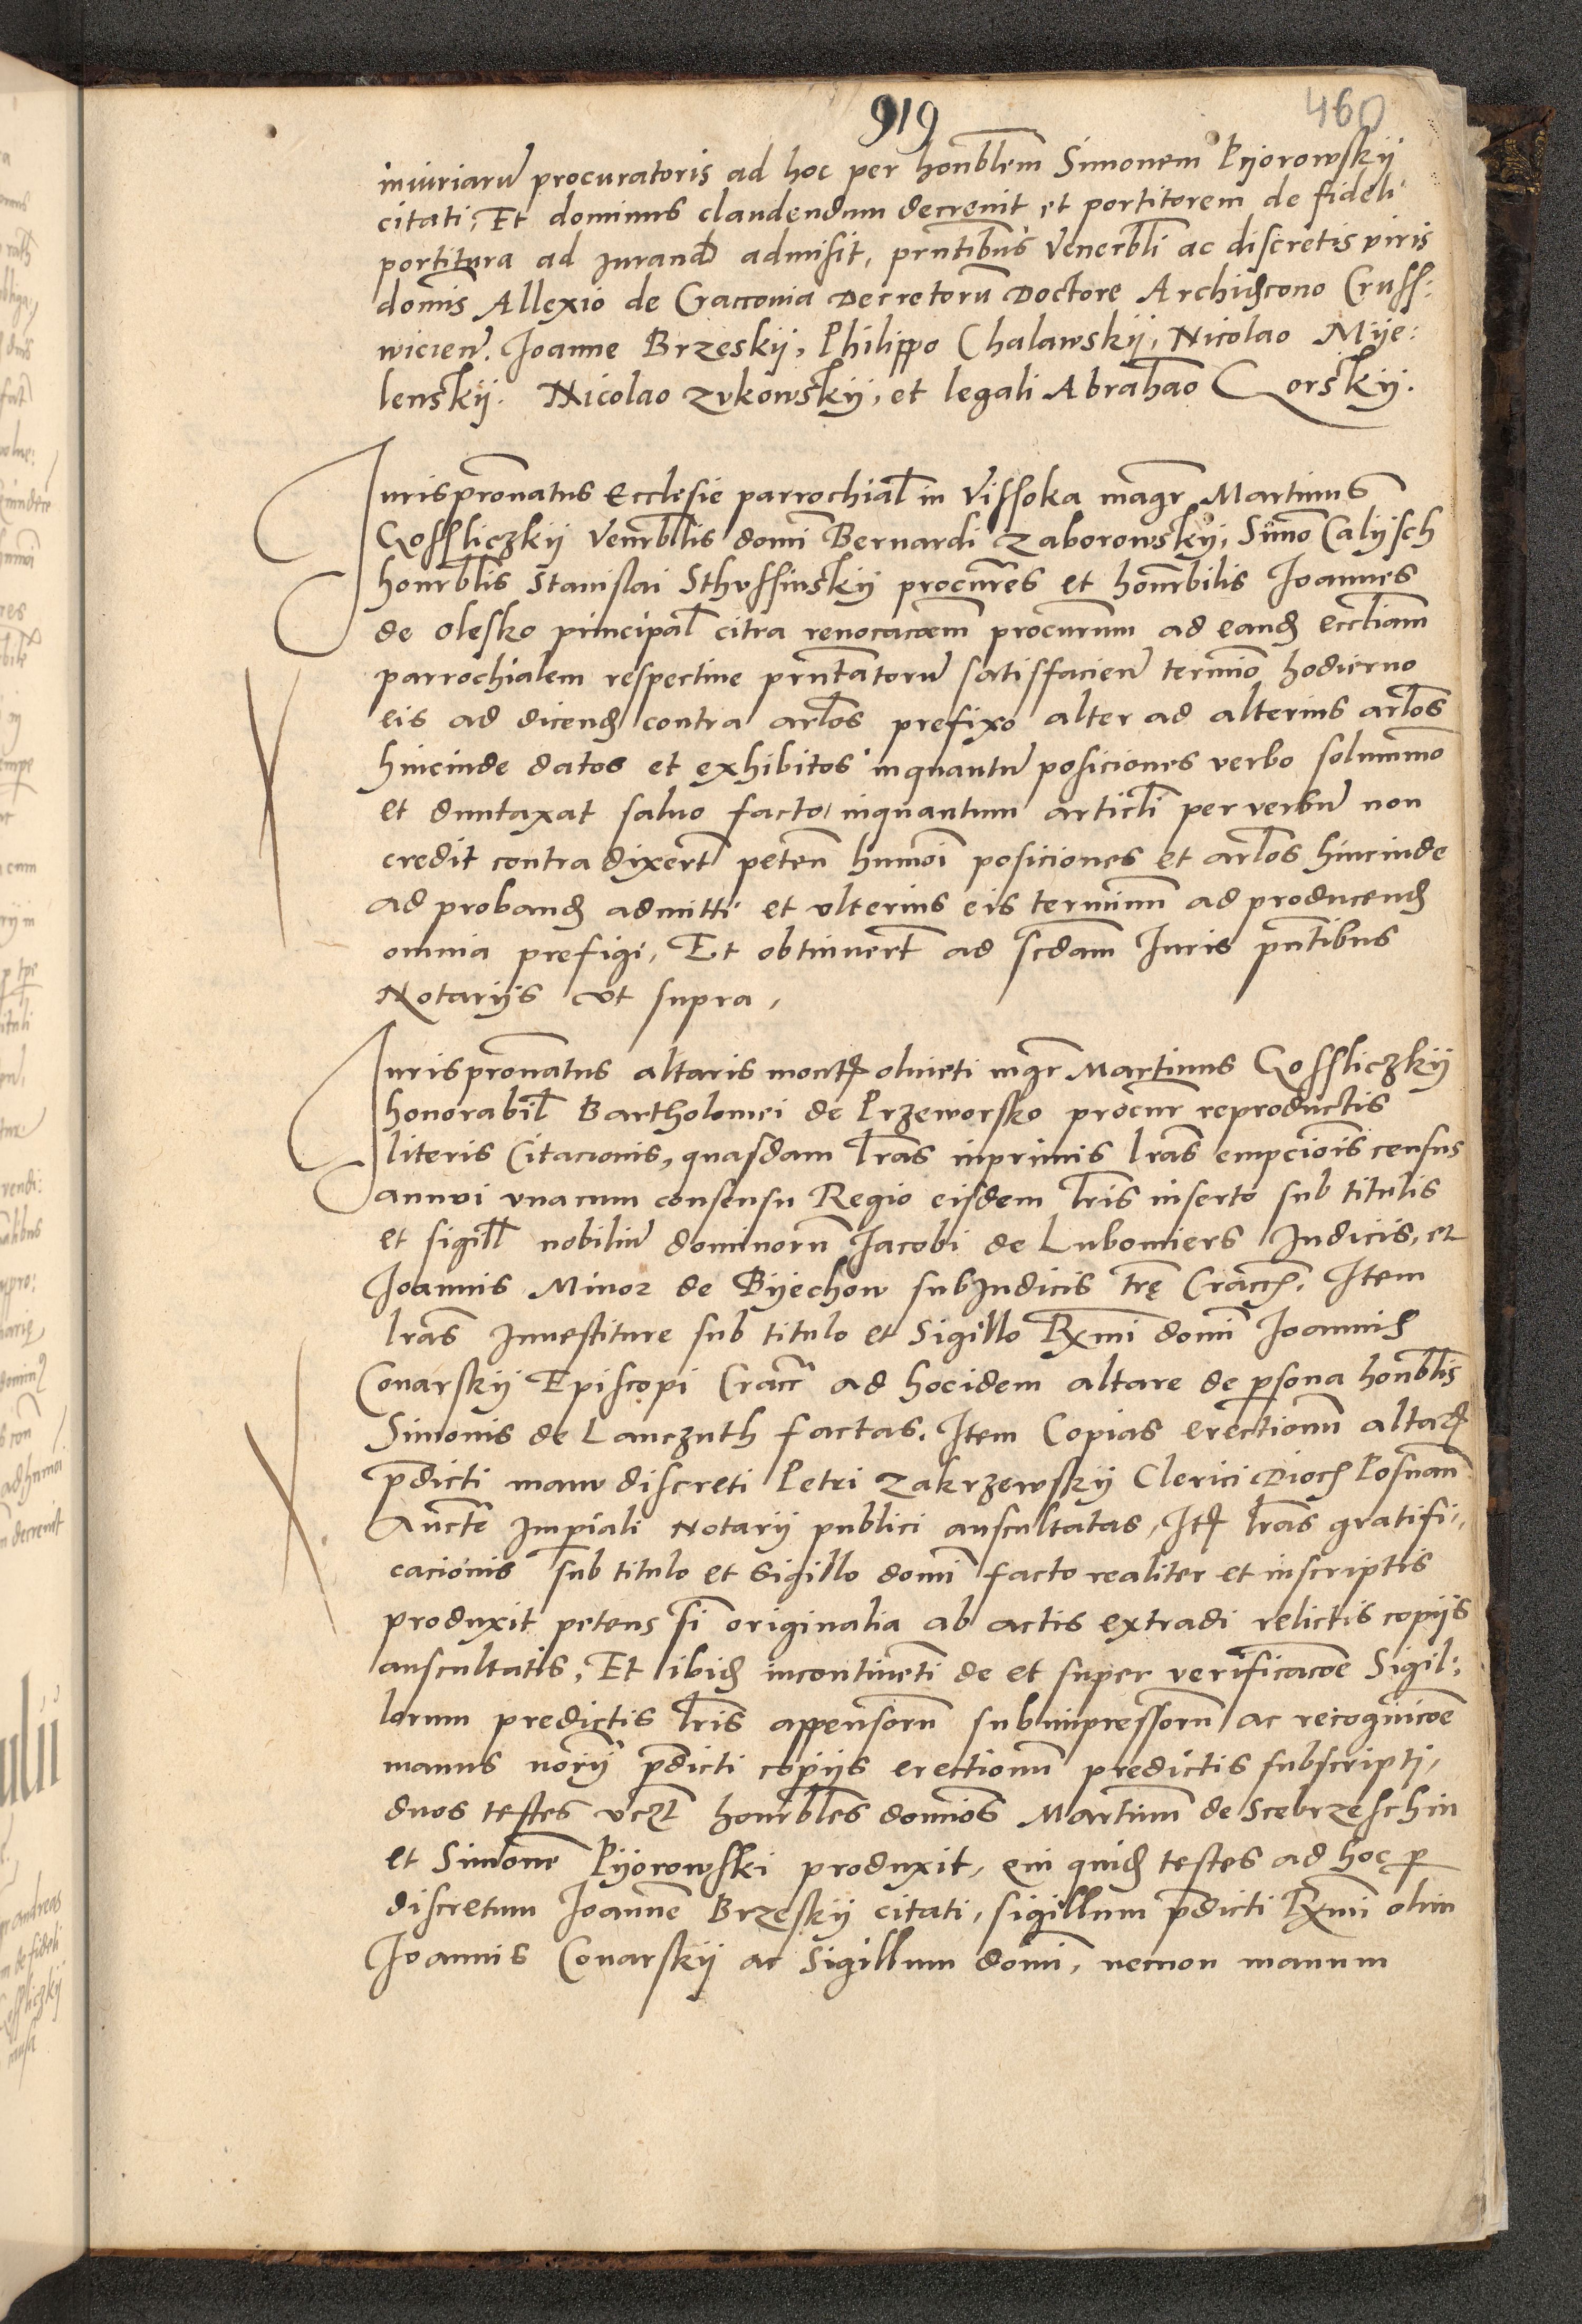 919
460
iniuriarū procuratoris ad hoc per honrblem̄ Simonem Pyorowskij
citati, Et dominus claudendum decrevit et portitorem de fideli
portitura ad Jurand admisit, prntibus Venerbli ac discretis viris
domis Allexio de Cracconia Decretorū Doctore Archidcono Cruss:
wicien̄. Joanne Brzeskij, Philippo Chalawskij, Nicolao Mije:
lenskij. Nicolao Zukowskij, et legali Abrahāo Gorskij.
Jurispronatus Ecclesie parrochial in Vissoka magr Martinus
Gosslıczkij Venrblis domi Bernardi Zaborowskij, Simo Calijsch
honrblis Stanislai Sthussinskij procures et honrbilis Joannes
de Olesko principal citra reuocacoem procurum ad eand eccliam
parrochialem respective prntatorū satisfacien termio hodierno
eis ad dicend contra arlos prefixo alter ad alterius arlos
hincinde datos et exhibitos inquantū posiciones verbo solummo
et duntaxat saluo facto, inquantum articli per verbū non
credit contradixert peten humoi posiciones et arlos hincinde
ad proband admitti et vlterius eis terminum ad producend
omnia prefigi, Et obtinuert ad scdam Juris pntibus
Notarijs vt supra,
Jurispronatus altaris mont oliueti mgr Martinus Gosslıczkij
honorabil Bartholomei de Przeworsko procur reproductis
literis Citacionis, quasdam lras inprimis lras empciois census
annui vnacum consensu Regio eisdem lris inserto sub titulis
et sigill nobiliū dominorū Jacobi de Lubomiers Judicis, et
Joannis Minor de Bijechow subJudicis trę Cracc. Item
lras Inuestiture sub titulo et Sigillo Rxmi domi Joannis
Conarskij Episcopi Cracc ad hocidem altare de psona honrblis
Simonis de Lanczuth factas. Item Copias erectionū altar
pdicti manu discreti Petri Zakrzewskij Clerici Dioc Posnan
Aucte Imperiali Notarij publici auscultatas, It lras gratifi,
cacionis sub titulo et Sigillo domi facto realiter et inscriptis
produxit petens si originalia ab actis extradi relictis copijs
auscultatis, Et ibid incontineti de et super verificacoe Sigil:
lorum predictis lris appensorū subimpressorū ac recognicoe
manus norij pdicti copijs erectionū predictis subscripti,
duos testes vczt honrbles domios Martinū de Scebrzeschin
et Simone Pijorowski produxit, qui quid testes ad hoc p
discretum Joanne Brzeskij citati, sigillum pdicti Rxmi olim
Joannis Conarskij ac Sigillum domi, necnon manum